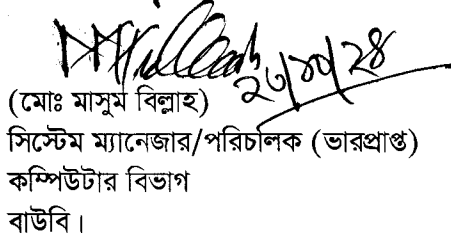 ২৩/১০/২৪
(মোঃ মাসুম বিল্লাহ)
সিস্টেম ম্যানেজার/পরিচালক (ভারপ্রাপ্ত)
কম্পিউটার বিভাগ
বাউবি।